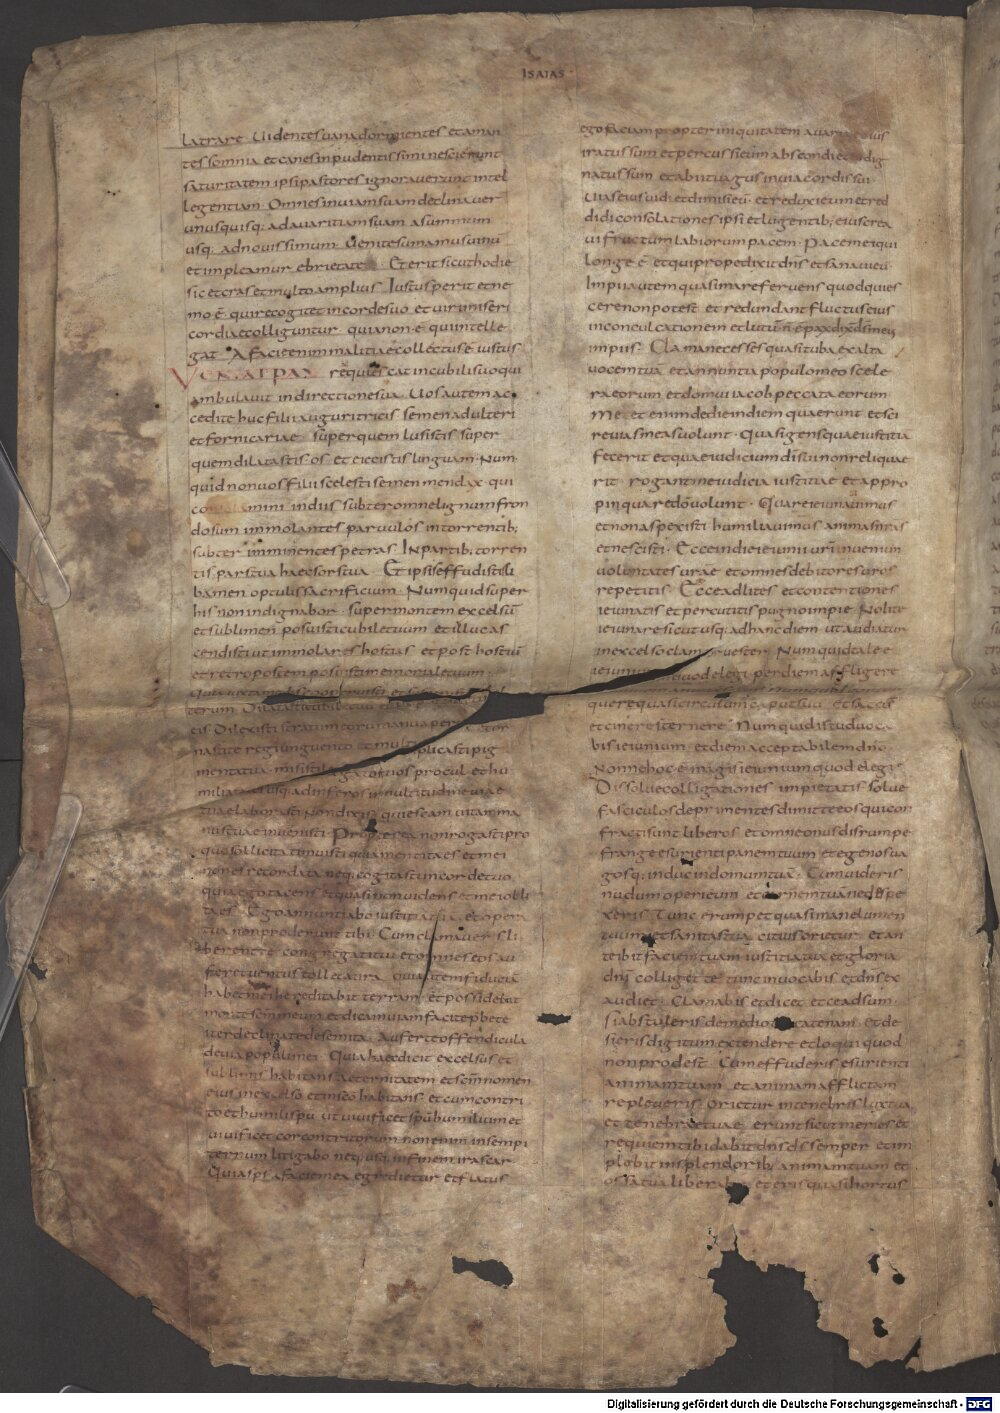 ISAIAS
latrare · Uidentes uana dormientes et aman
tes somnia et canes inpudentissimi nescierunt
saturitatem ipsi pastores ignorauerunt intel
legentiam · Omnes in uiam suam declinauer
unusquisq; ad auaritiam suam a summum
usq; ad nouissimum · Uenite sumamus uinu
et impleamur ebrietate · Et erit sicut hodie
sic et cras et multo amplius · Iustus perit et ne
mo ē · qui recogitet in corde suo et uiri miseri
cordiae colliguntur · quia non ē · qui intelle
gat · A facie enim malitiae collectus ē iustus
UENIAT PAX requiescat in cubili suo qui
ambulauit in directione sua · Uos autem ac
cedite huc filii auguratricis semen adulteri
et fornicariae · super quem lusistis super
quem dilatastis os · et eiecistis linguam · Num
quid non uos filii scelesti semen mendax · qui
consolamini in diis subter omne lignum fron
dosum immolantes paruulos in torrentib;
subter imminentes petras · In partib; torren
tis pars tua haec sors tua · Et ipsis effudisti li
bamen optulisti sacrificium · Numquid super
his non indignabor · super montem excelsū
et sublimem posuisti cubile tuum et illuc as
cendisti ut immolares hostias · et post hostiū
et retro postem posuisti memoriale tuum
eis · Dilexisti stratum eorum manu aper
na ste regi unguento et multiplicasti pig
menta tua · misisti legatos tuos procul et hu
miliata es usq; ad inferos in multitudine uiae
tuae laborasti · Non dixisti quiescam uitam ma
nus tuae inuenisti · Propterea non rogasti pro
quo sollicita timuisti quia mentita es et mei
non es recordata neq; cogitasti in corde tuo
quia ego tacens et quasi non uidens et mei obli
ta es · Ego annuntiabo iustitiam tuā et opera
tua non proderunt tibi · Cum clamaueris li
berent te congregati tui et omnes eos au
feret uentus tollet aura · qui autem fiduciā
habet mei hereditabit terram · et possidebit
montem scm meum et dicam uiam facite p̄bete
iter declinate de semita · Auferte offendicula
de uia populi mei · Quia haec dicit excelsus et
sublimis habitans aeternitatem et scm nomen
eius in excelso et in sco habitans et cum contri
to et humili spu ut uiuificet spm humilium et
uiuificet cor contritorum non enim in sempi
ternum litigabo neq; usq; in finem irascar
Quia sps a facie mea egredietur et flatus
ego faciam propter iniquitatem auaritiae eius
iratus sum et percussi eum abscondi et indig
natus sum et abiit uagus in uia cordis sui
Uias eius uidi et dimisi eū · et reduxi eum et red
didi consolationes ipsi et lugentib; eius crea
ui fructum labiorum pacem · Pacem ei qui
longe ē · et qui prope dixit dns et sanaui eū ·
Impii autem quasi mare feruens quod quies
cere non potest · et redundant fluctus eius
in conculcationem et lutū · n̄ ē pax dix ds meus
impiis · Clama ne cesses quasi tuba exalta
uocem tua et annuntia populo meo scele
ra eorum et domui iacob peccata eorum
Me et enim de die in diem quaerunt et sci
re uias meas uolunt · Quasi gens quae iustitiā
fecerit et quae iudicium di sui non reliquae
rit · rogant me iudicia iustitiae et appro
pinquare dō uolunt · Quare ieiunauimus
et non aspexisti humiliauimus animas nras
et nescisti · Ecce in die ieiunii uri inuenitur
uoluntates urae et omnes debitores uros
repetitis · Ecce ad lites et contentiones
ieiunatis et percutitis pugno impie · Nolite
ieiunare sicut usq; ad hanc diem ut audiatur
in excelso clamor uester · Numquid tale ē
ieiunium quod elegi per diem affligere
quere quasi circulum caput suū · et saccū
et cinerē sternere · Numquid istud uoca
bis ieiunium · et diem acceptabilem dno
Nonne hoc ē magis ieiunium quod elegi
Dissolue colligationes impietatis solue
fasciculos deprimentes dimitte eos qui con
fracti sunt liberos · et omne onus disrumpe
frange esurienti panem tuum et egenos ua
gosq; induc in domum tuā · Cum uideris
nudum operi eum et carnem tuā ne despe
xeris · Tunc erumpet quasi mane lumen
tuum et sanitas tua citius orietur et an
teibit faciem tuam iustitia tua et gloria
dni colliget te · tunc inuocabis et dns ex
audiet · Clamabis et dicet ecce adsum ·
si abstuleris de medio tui catenam · et de
sieris digitum extendere et loqui quod
non prodest · Cum effuderis esurienti
animam tuam · et animam afflictam
repleueris · orietur in tenebris lux tua
et tenebrae tuae erunt sicut meries et
requiem tibi dabit dns ds semper et im
plebit in splendorib; animam tuam et
ossa tua liberabit et eris quasi hortus
Digitalisierung gefördert durch die Deutsche Forschungsgemeinschaft - DFG